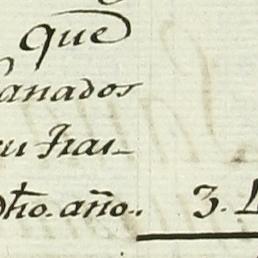 que
anados
su Frai-
dho. año.. 3.